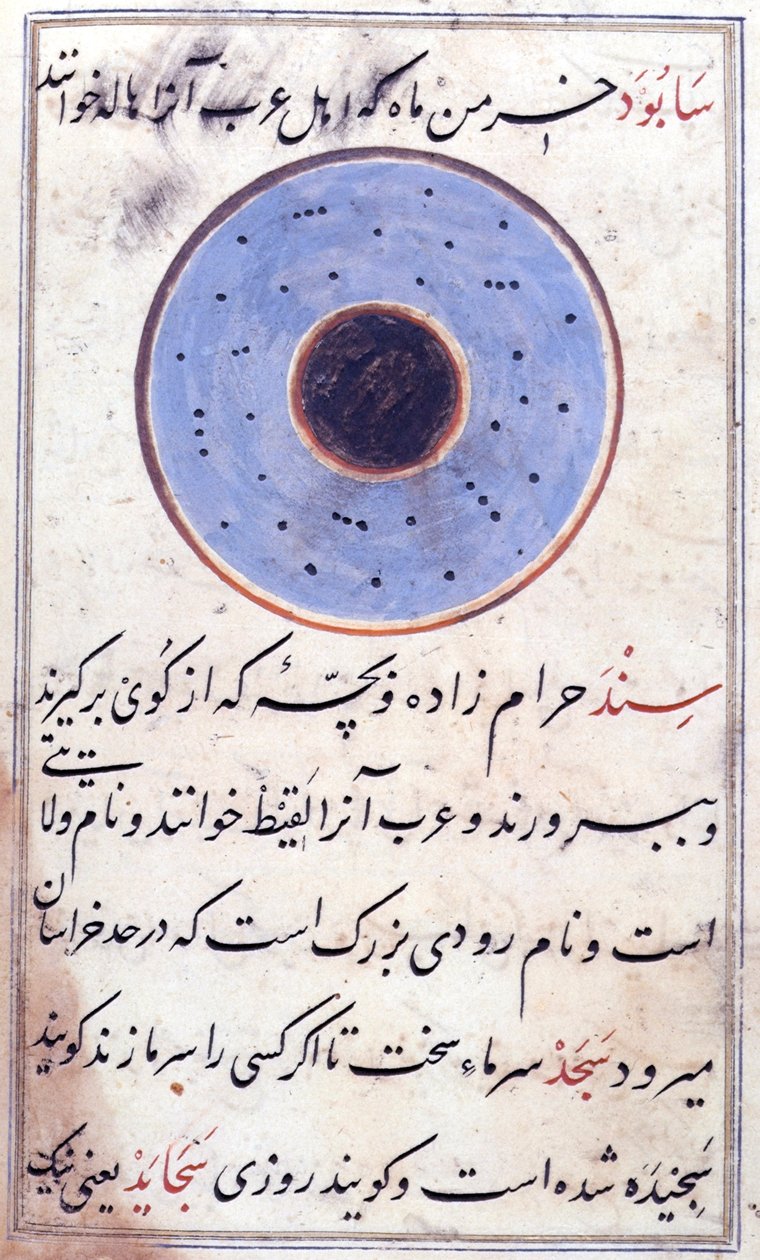 سَابُوَد خرمن ماه که اهل عرب آنرا هاله خوانند
سِنْدَ حرام زاده و بچّهٔ که از کُویْ برگیرند
و بپرورند و عرب آنرا لَقِیْطْ خوانند و نام ولایتی
است و نام رودی بزرک است که در حد خراسان
میرود سَجَدْ سرماءِ سخت تا اکر کسی را سرما زند کویند
سَجِیدَه شده است و کویند روزی سَجَایَدْ یعنی نیک